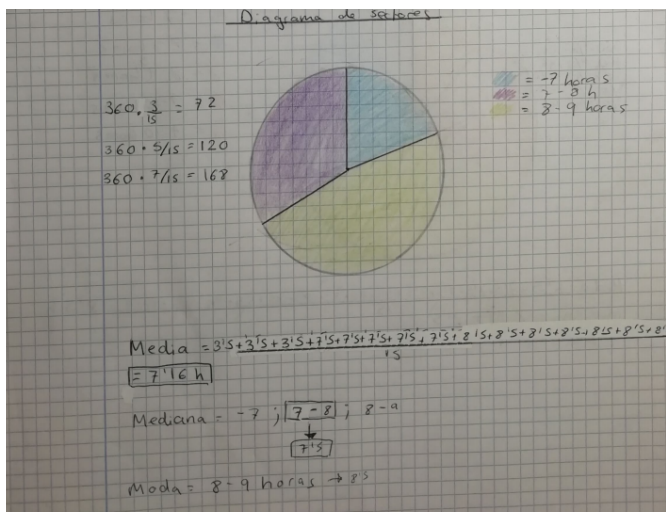 Diagrama de sectores
360 · 3/15 = 72
360 · 5/15 = 120
360 · 7/15 = 168
= -7 horas
= 7-8 h
= 8-9 horas
Media = 3'5+3'5+3'5+7'5+7'5+7'5+7'5+7'5+8'5+8'5+8'5+8'5+8'5+8'5+8'
15
= 7'16 h
Mediana = -7 ; 7-8 ; 8-9
7'5
Moda = 8-9 horas → 8'5